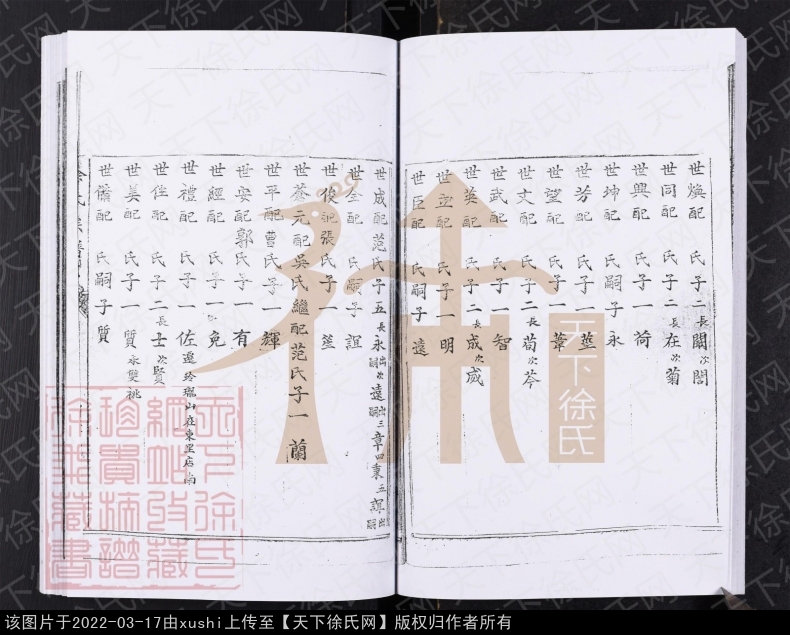 世煥配 氏子二 長閣次誾
世同配 氏子二 長在次菊
世興配 氏子一 荷
世坤配 氏嗣子永
世芳配 氏子一 莖
世望配 氏子一 葦
世文配 氏子二 長荀次芩
世武配 氏子一 智
世英配 氏子二 長成次咸
世立配 氏子一 明
世臣配 氏嗣子遠
世成配范氏子五 長永出嗣次遠出嗣三章四秉五誼出嗣
世全配 氏嗣子誼
世俊配張氏子一 莹
世蒼元配吳氏繼配范氏子一 蘭
世平配曹氏子一 輝
世安配郭氏子一 有
世經配 氏子一 免
世禮配 氏子一 佐 遷 瑞山莊東里店南
世任配 氏子二 長士次賢
世美配 氏子一 質 承雙祧
世備配 氏嗣子質
徐氏族譜
天下徐氏
天下徐氏网
该图片于2022-03-17由xushi上传至【天下徐氏网】版权归作者所有